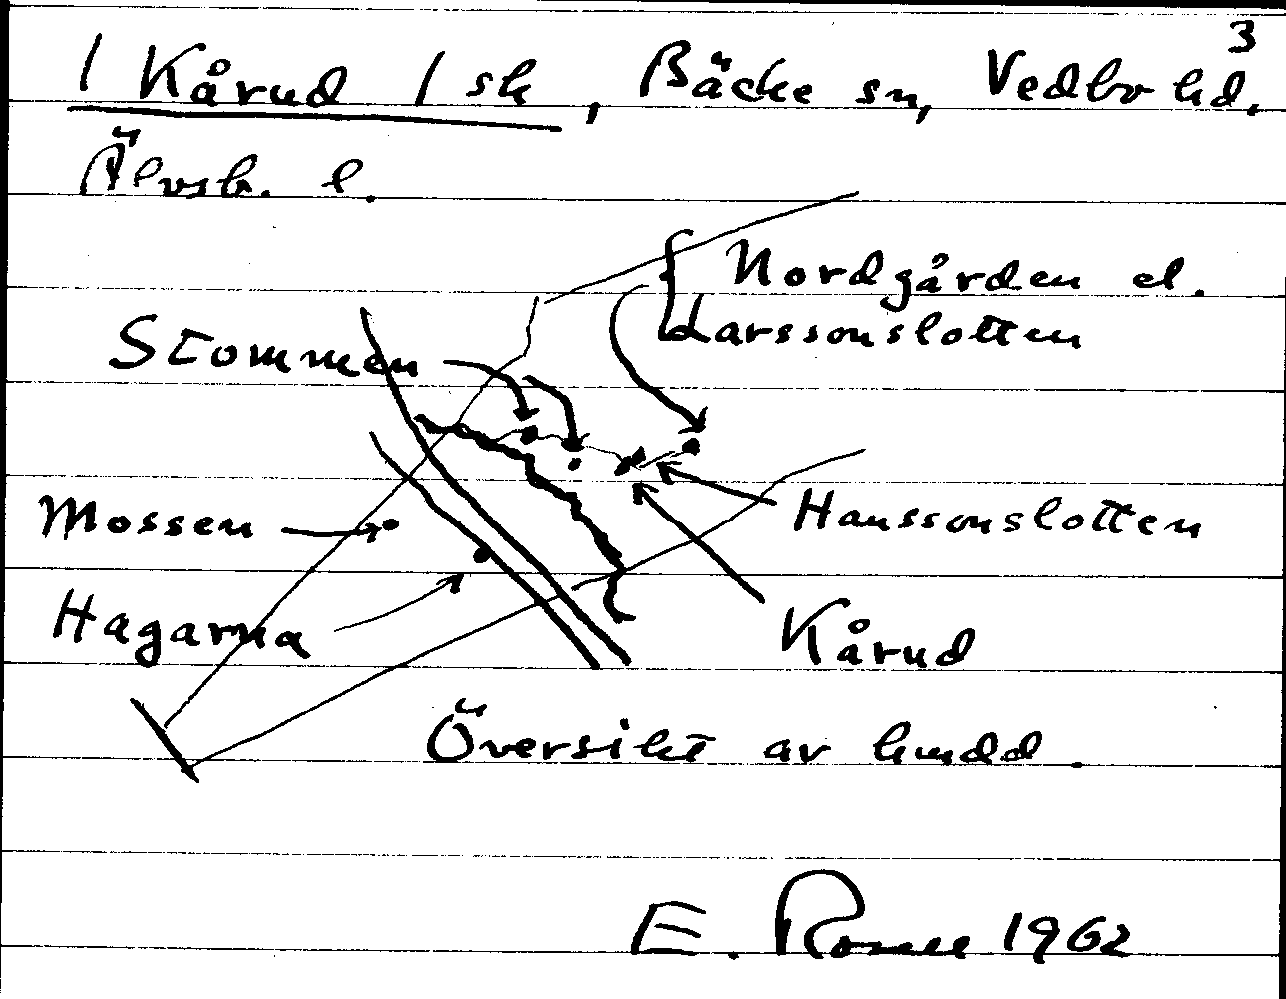 3
/ Kårud / sk, Bäcke sn, Vedbo hd,
Älvsb. l.
Nordgården el.
Larssonslotten
Stommen
Mossen
Hanssonslotten
Hagarna
Kårud
Översikt av
E. 1962